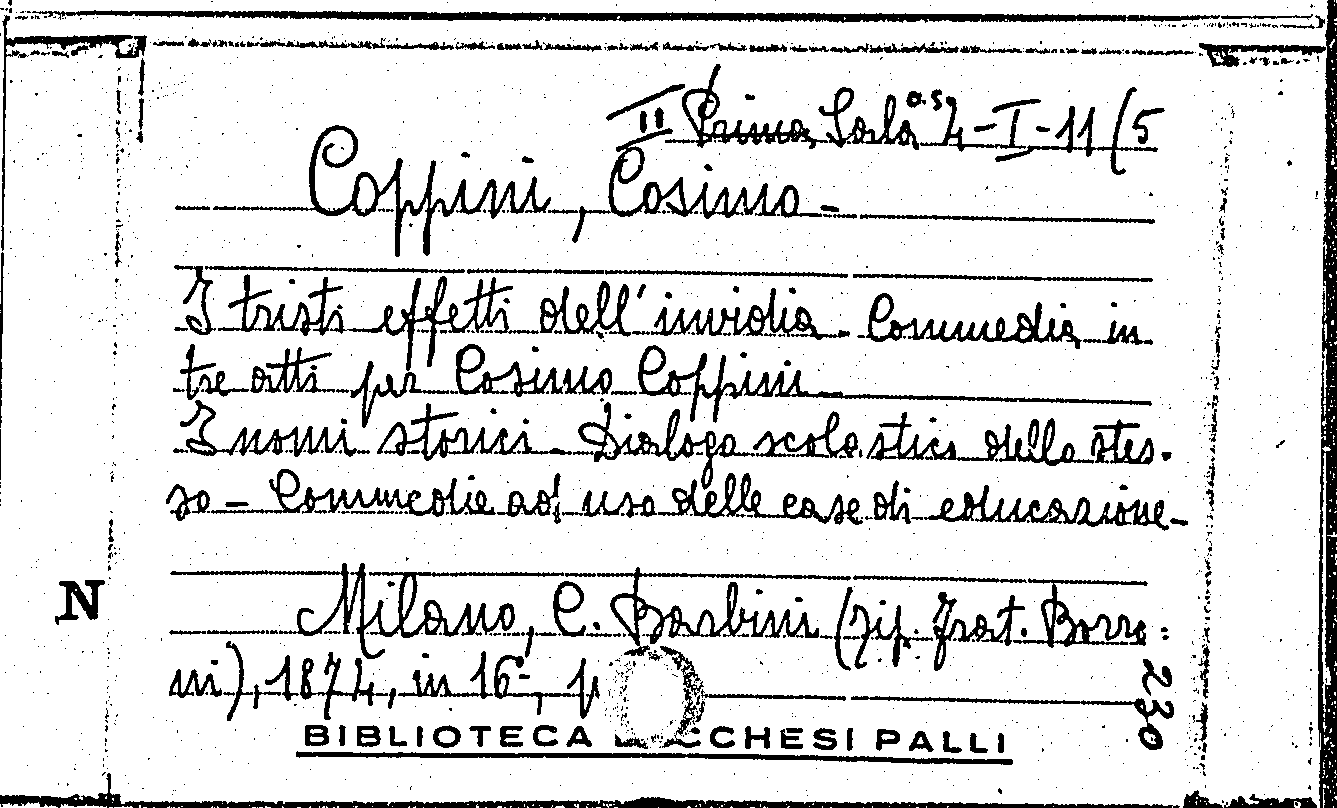 II Prima Sala a.s. 4-I-11/5
Coppini, Cosimo -
I tristi effetti dell'invidia - Commedia in
tre atti per Cosimo Coppini -
I nomi storici - Dialogo scolastico dello stes-
so - Commedie ad uso delle case di educazione -
N
Milano, C. Barbini (tip. frat. Borro:
ni), 1874, in 16°, p
230
BIBLIOTECA CCHESI PALLI